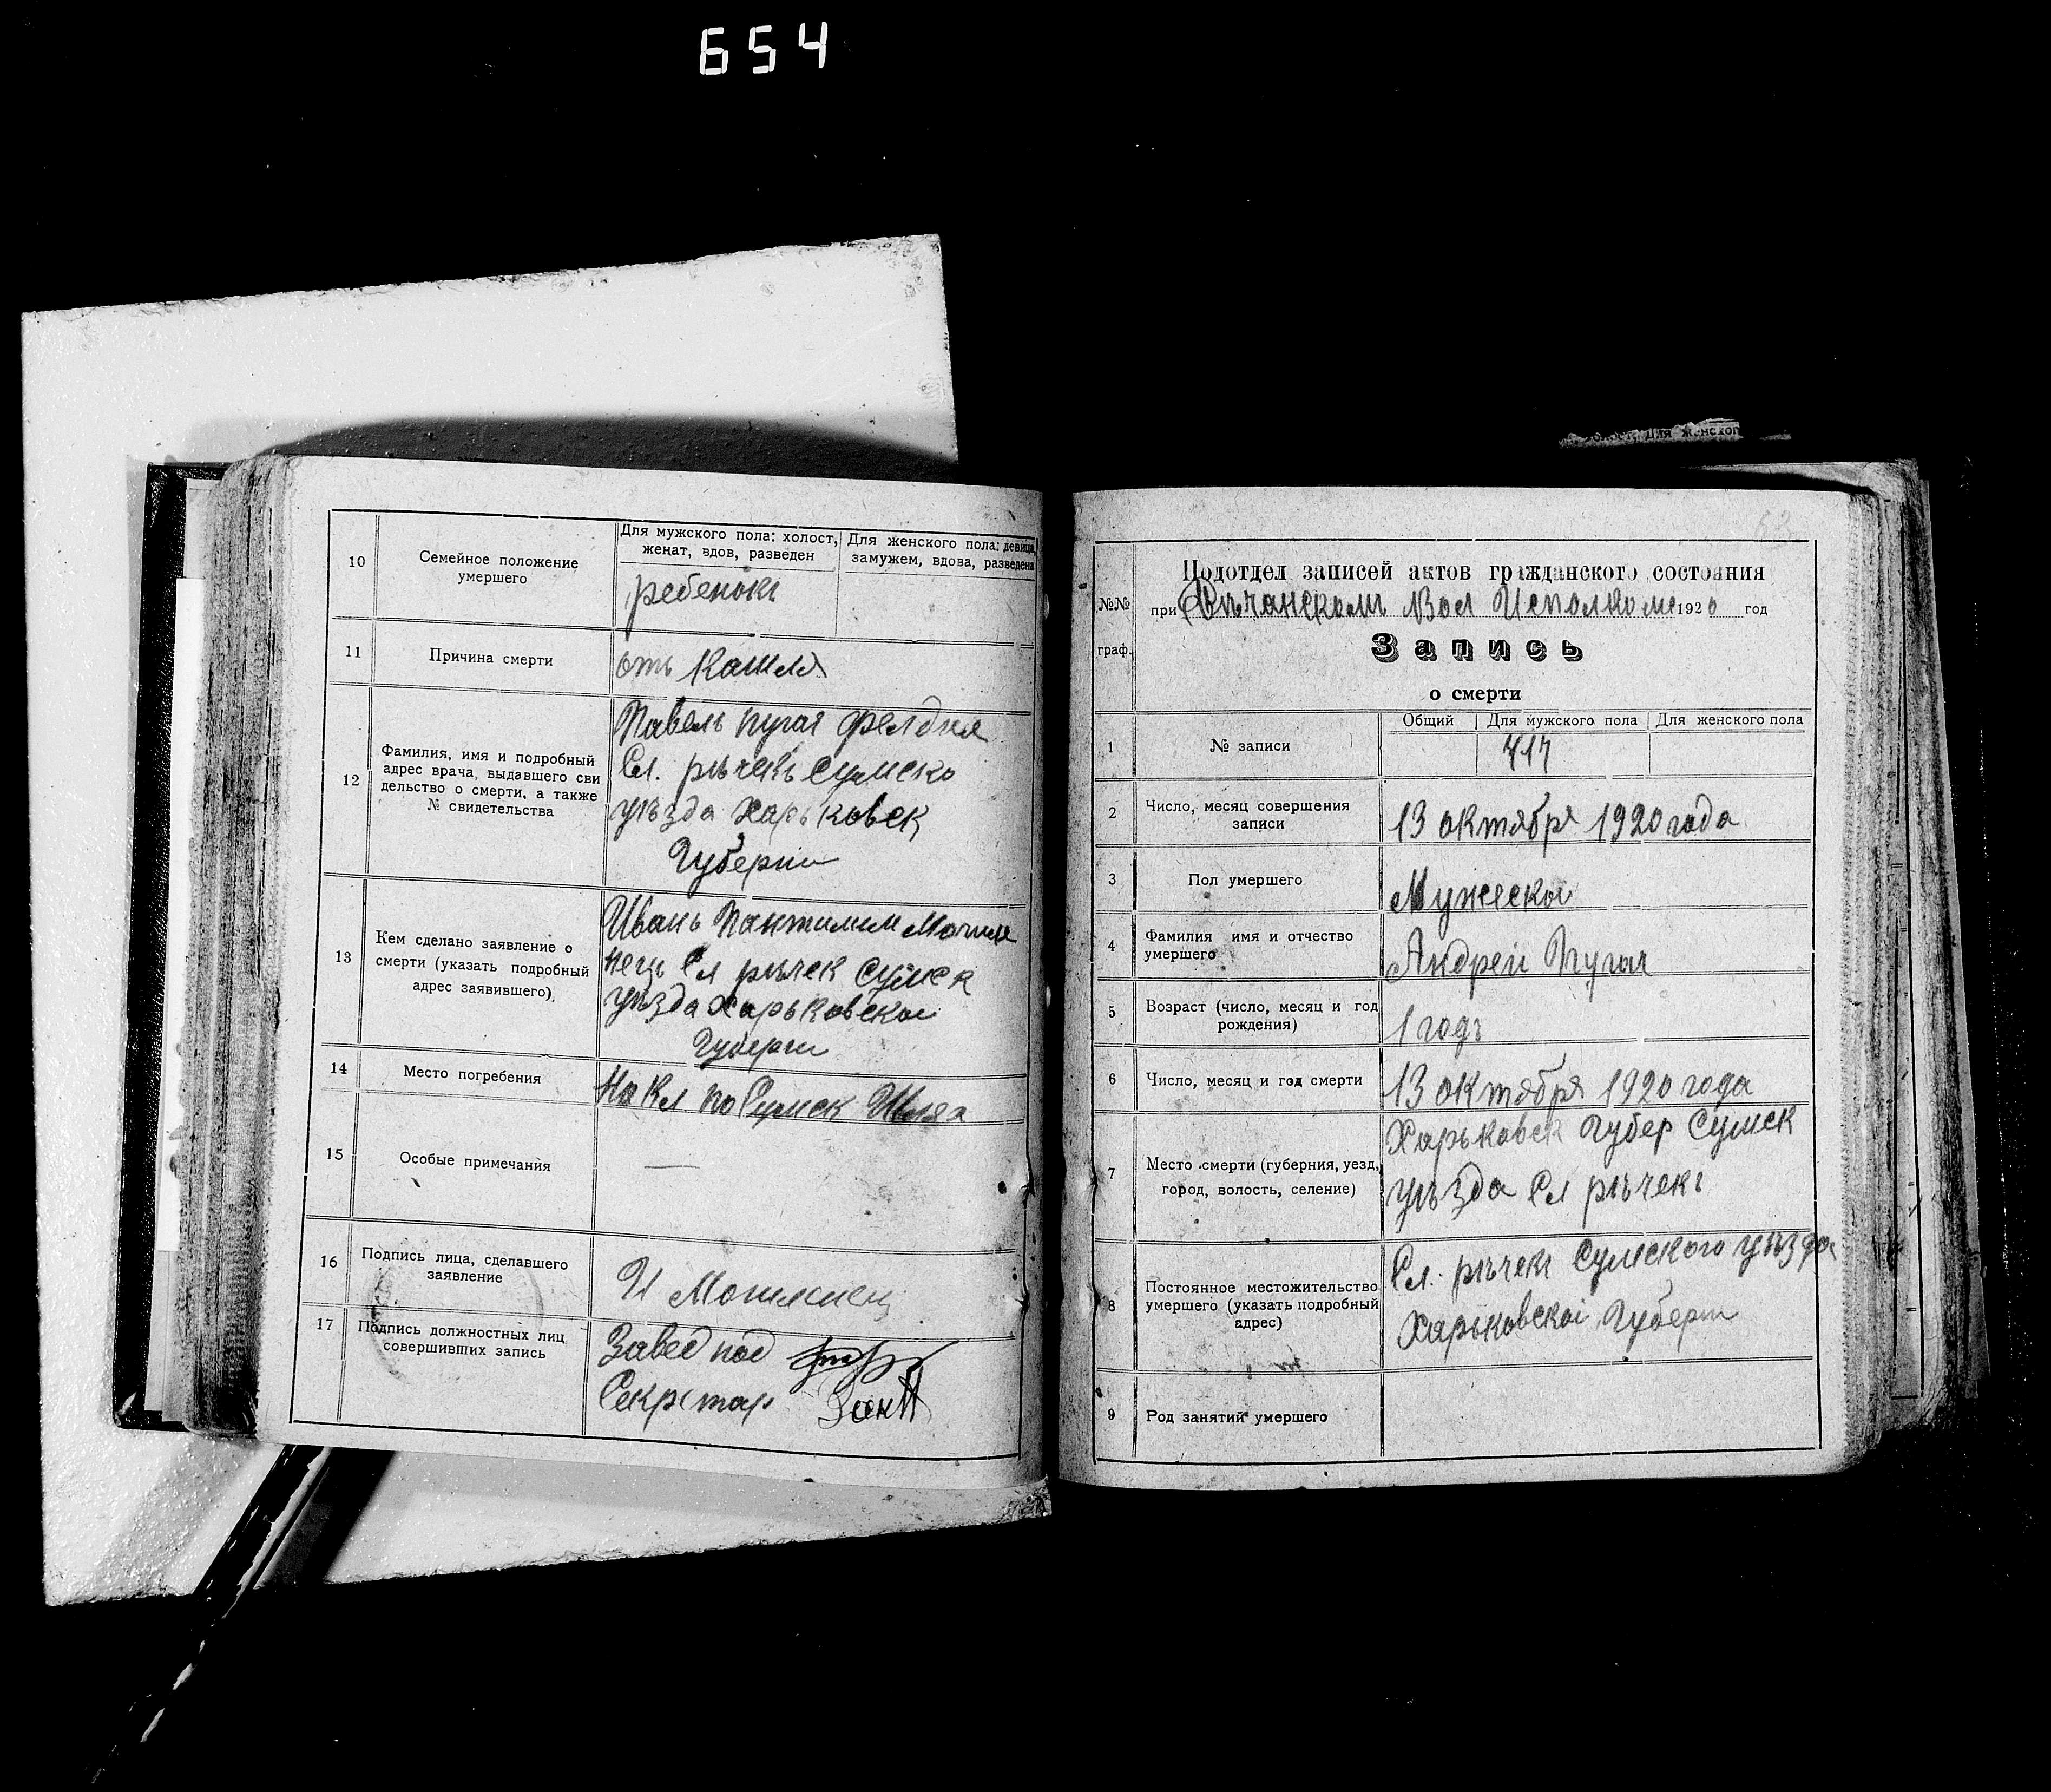 654
10
Семейное положение
умершего
Для мужского пола: холост,
женат, вдов, разведен
Для женского пола: девица,
замужем, вдова, разведена
ребенокъ
11
Причина смерти
отъ Кашля
12
Фамилия, имя и подробный
адрес врача, выдавшего сви
дельство о смерти, а также
№ свидетельства
Павелъ пугач
Сл. рѣчекъ Сумско
уѣзда Харьковск
Губерни
13
Кем сделано заявление о
смерти (указать подробный
адрес заявившего)
Иванъ Пантилим Могиле
нецъ Сл рѣчек Сумск
уѣзда Харьковскои
Губерни
14
Место погребения
На Кл по Сумск Шляха
15
Особые примечания
—
16
Подпись лица, сделавшего
заявление
И Могиленец
17
Подпись должностных лиц
совершивших запись
Завед под
Секретар
63
№№
граф.
Подотдел записей актов гражданского состояния
при Рѣчанскомъ Вол Исполкоме 1920 год
Запись
о смерти
Общий
Для мужского пола
Для женского пола
1
№ записи
417
2
Число, месяц совершения
записи
13 октября 1920 года
3
Пол умершего
Мужескои
4
Фамилия имя и отчество
умершего
Андреи Пугач
5
Возраст (число, месяц и год
рождения)
1 годъ
6
Число, месяц и год смерти
13 октября 1920 года
7
Место смерти (губерния, уезд,
город, волость, селение)
Харьковск Губер Сумск
уѣзда Сл рѣчекъ
8
Постоянное местожительство
умершего (указать подробный
адрес)
Сл. рѣчекъ Сумского уѣзда
Харьковскои Губерни
9
Род занятий умершего